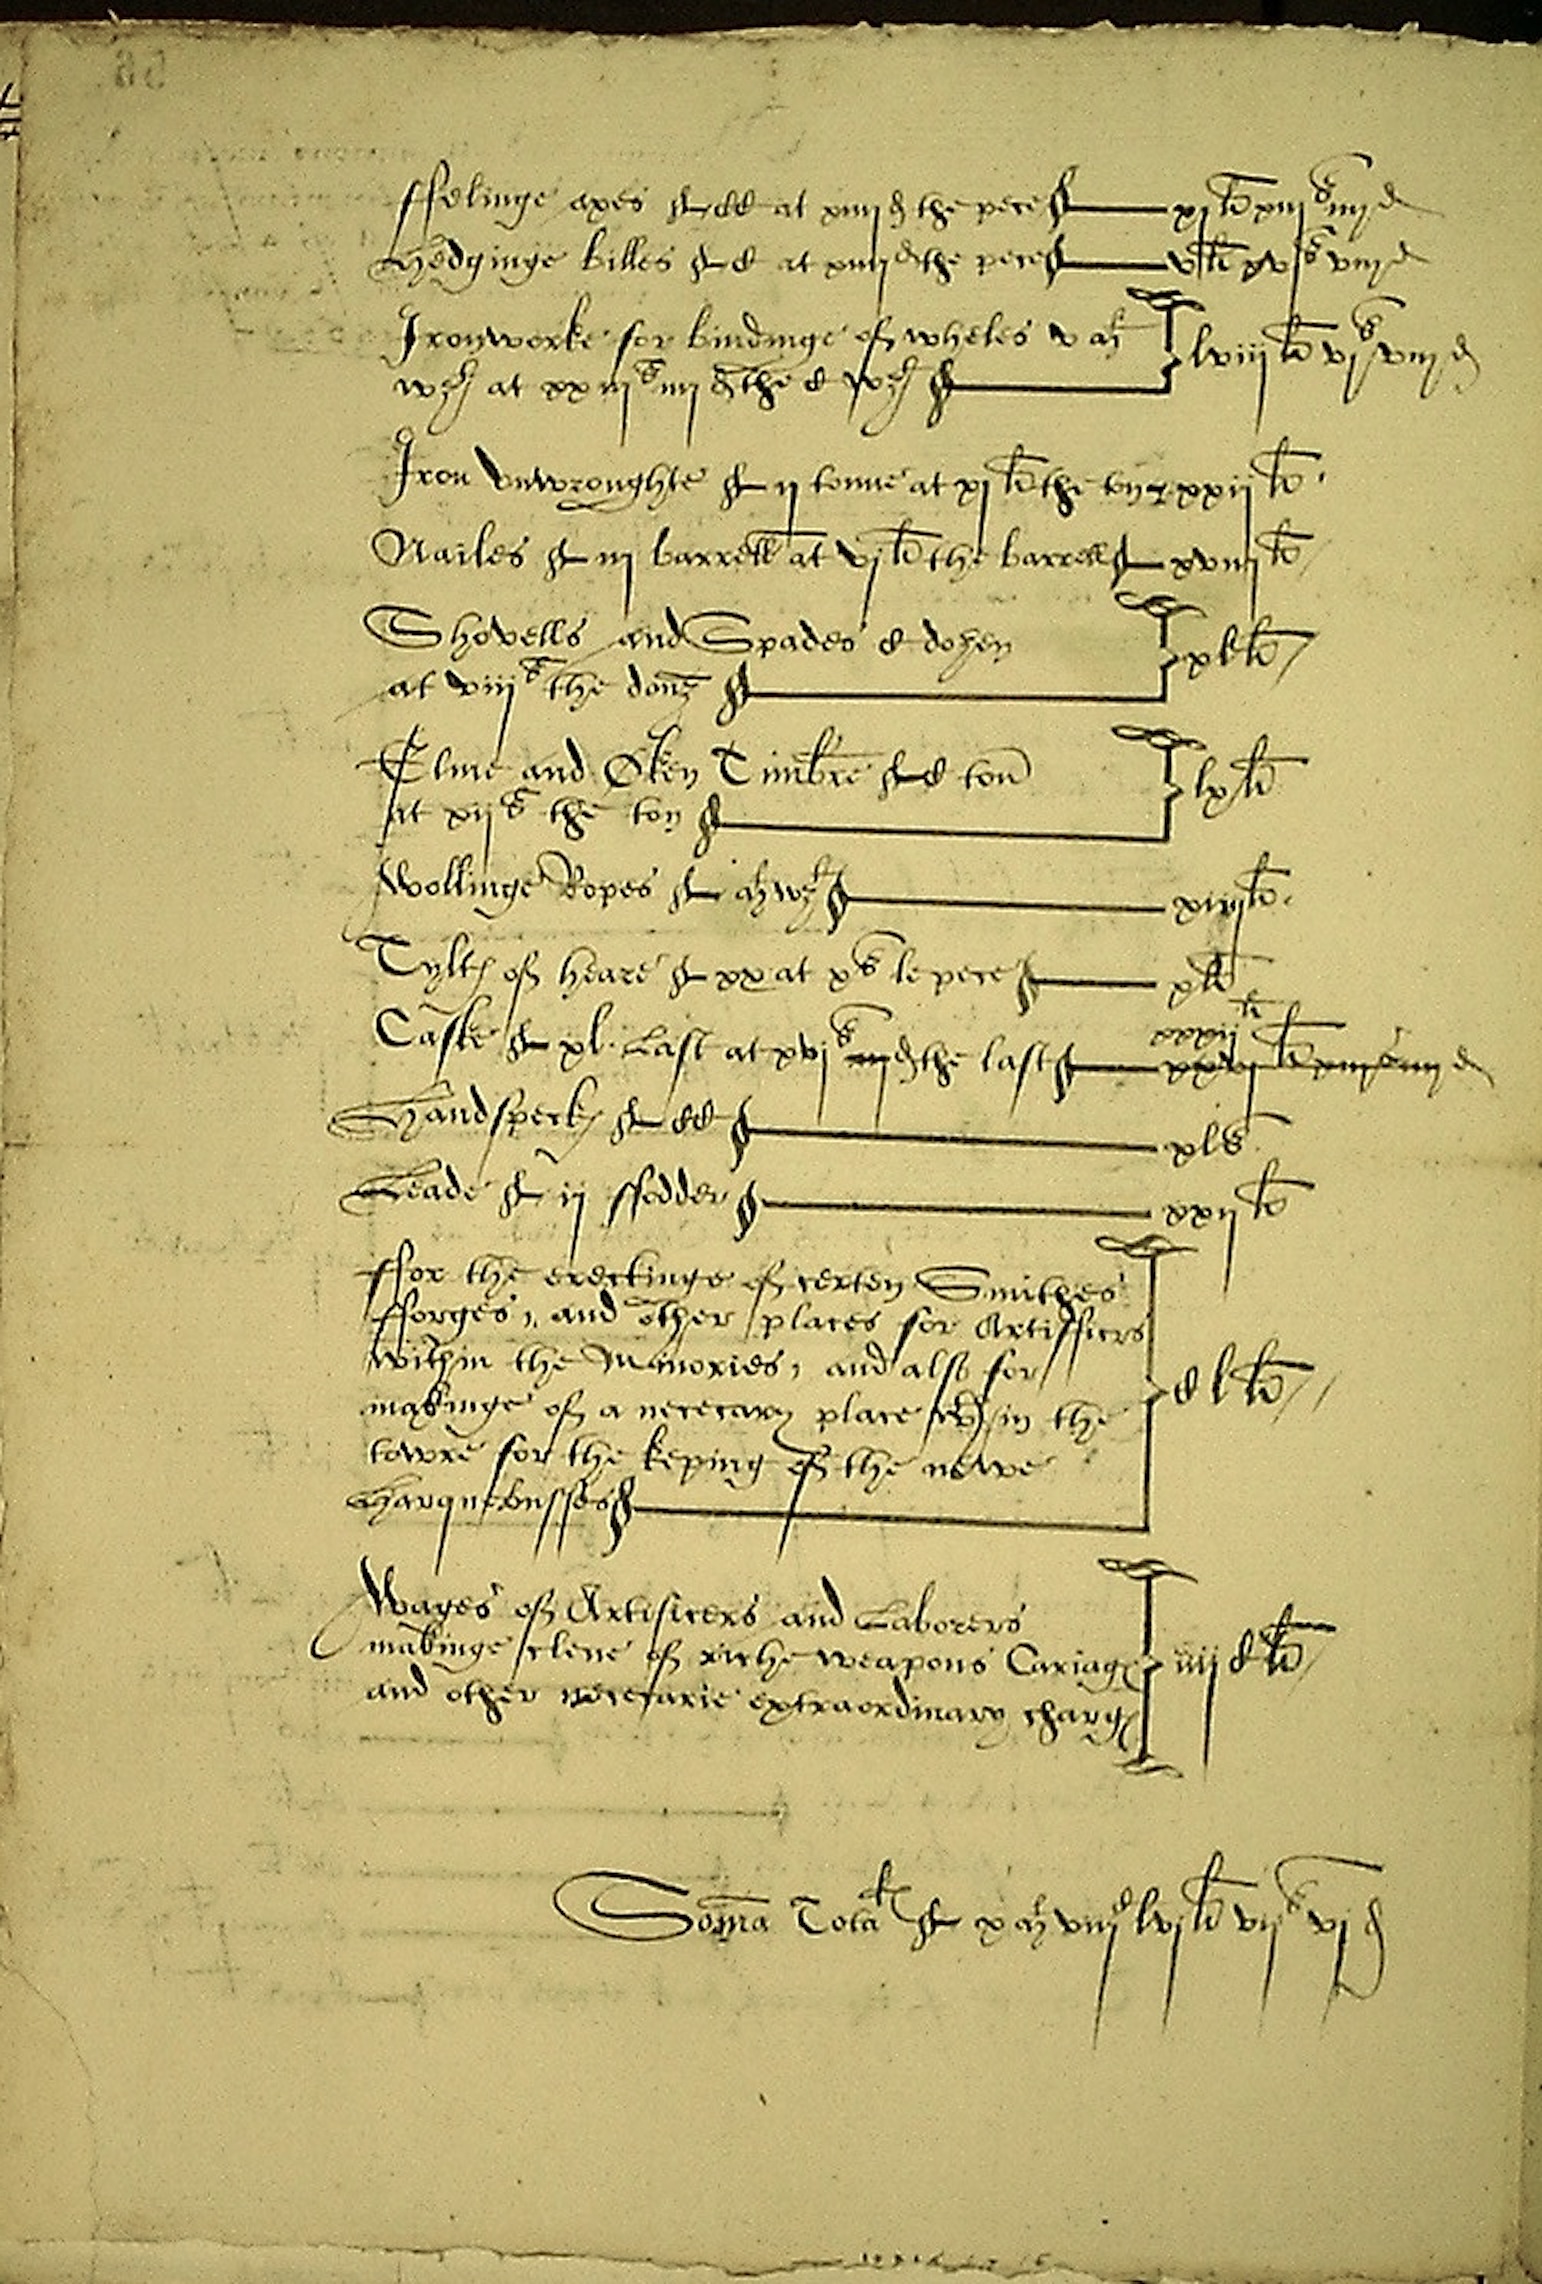 ffelinge axes — CC at xiiij d the pece — xj li xiij s iiij d
Hedginge billes — C at xiiij d the pece — v li xvj s viij d
Ironworke for bindinge of wheles v ml
wt at xxiij s iiij d the C wt — lviij li vj s viij d
Iron vnwroughte — ij tonne at xj li the ton — xxij li
Nailes — iij barrell at vj li the barrell — xviij li
Shovells and Spades C dozen
at viij s the douz — xl li
Elme and Oken Timbre — C ton
at xij s the ton — lx li
Wollinge Ropes — ml wt — xiiij li
Tylts of heare — xx at x s le pece — x li
xxxij li
Caske — xl Last at xvj s iiij d the last — xxvj li xiij s iiij d
Handspeckes — CC — xl s
Leade — ij ffodder — xxij li
ffor the erectinge of certen Smithes
fforges, and other places for Artifficers
within the Minories, and also for
makinge of a nececary place wth in the
towre for the keping of the newe
Harquebusses — C l li
Wages of Artificers and Laborers
makinge clene of riche weapons Cariages
and other necesarie extraordinary charges — iiij C li
Soma Total — x ml viij C lvj li vij s vj d